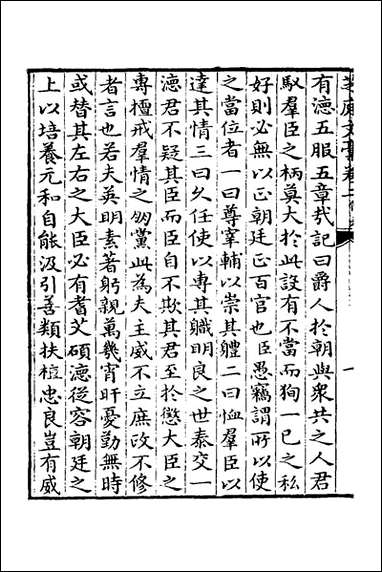 有德五服五章哉記曰爵人於朝與衆共之人君
馭羣臣之柄莫大於此設有不當而狥一已之私
好則必無以正朝廷正百官也臣愚竊謂所以使
之當位者一曰尊宰輔以崇其軆二曰恤羣臣以
達其情三曰久任使以專其職明良之世泰交一
德君不疑其臣而臣自不欺其君至於懲大臣之
專擅戒羣情之朋黨此為夫主威不立庶政不修
者言也若夫英明素著躬親萬幾宵旰憂勤無時
或替其左右之大臣必有耆艾碩德從容朝廷之
上以培養元和自能汲引善類扶植忠良豈有威